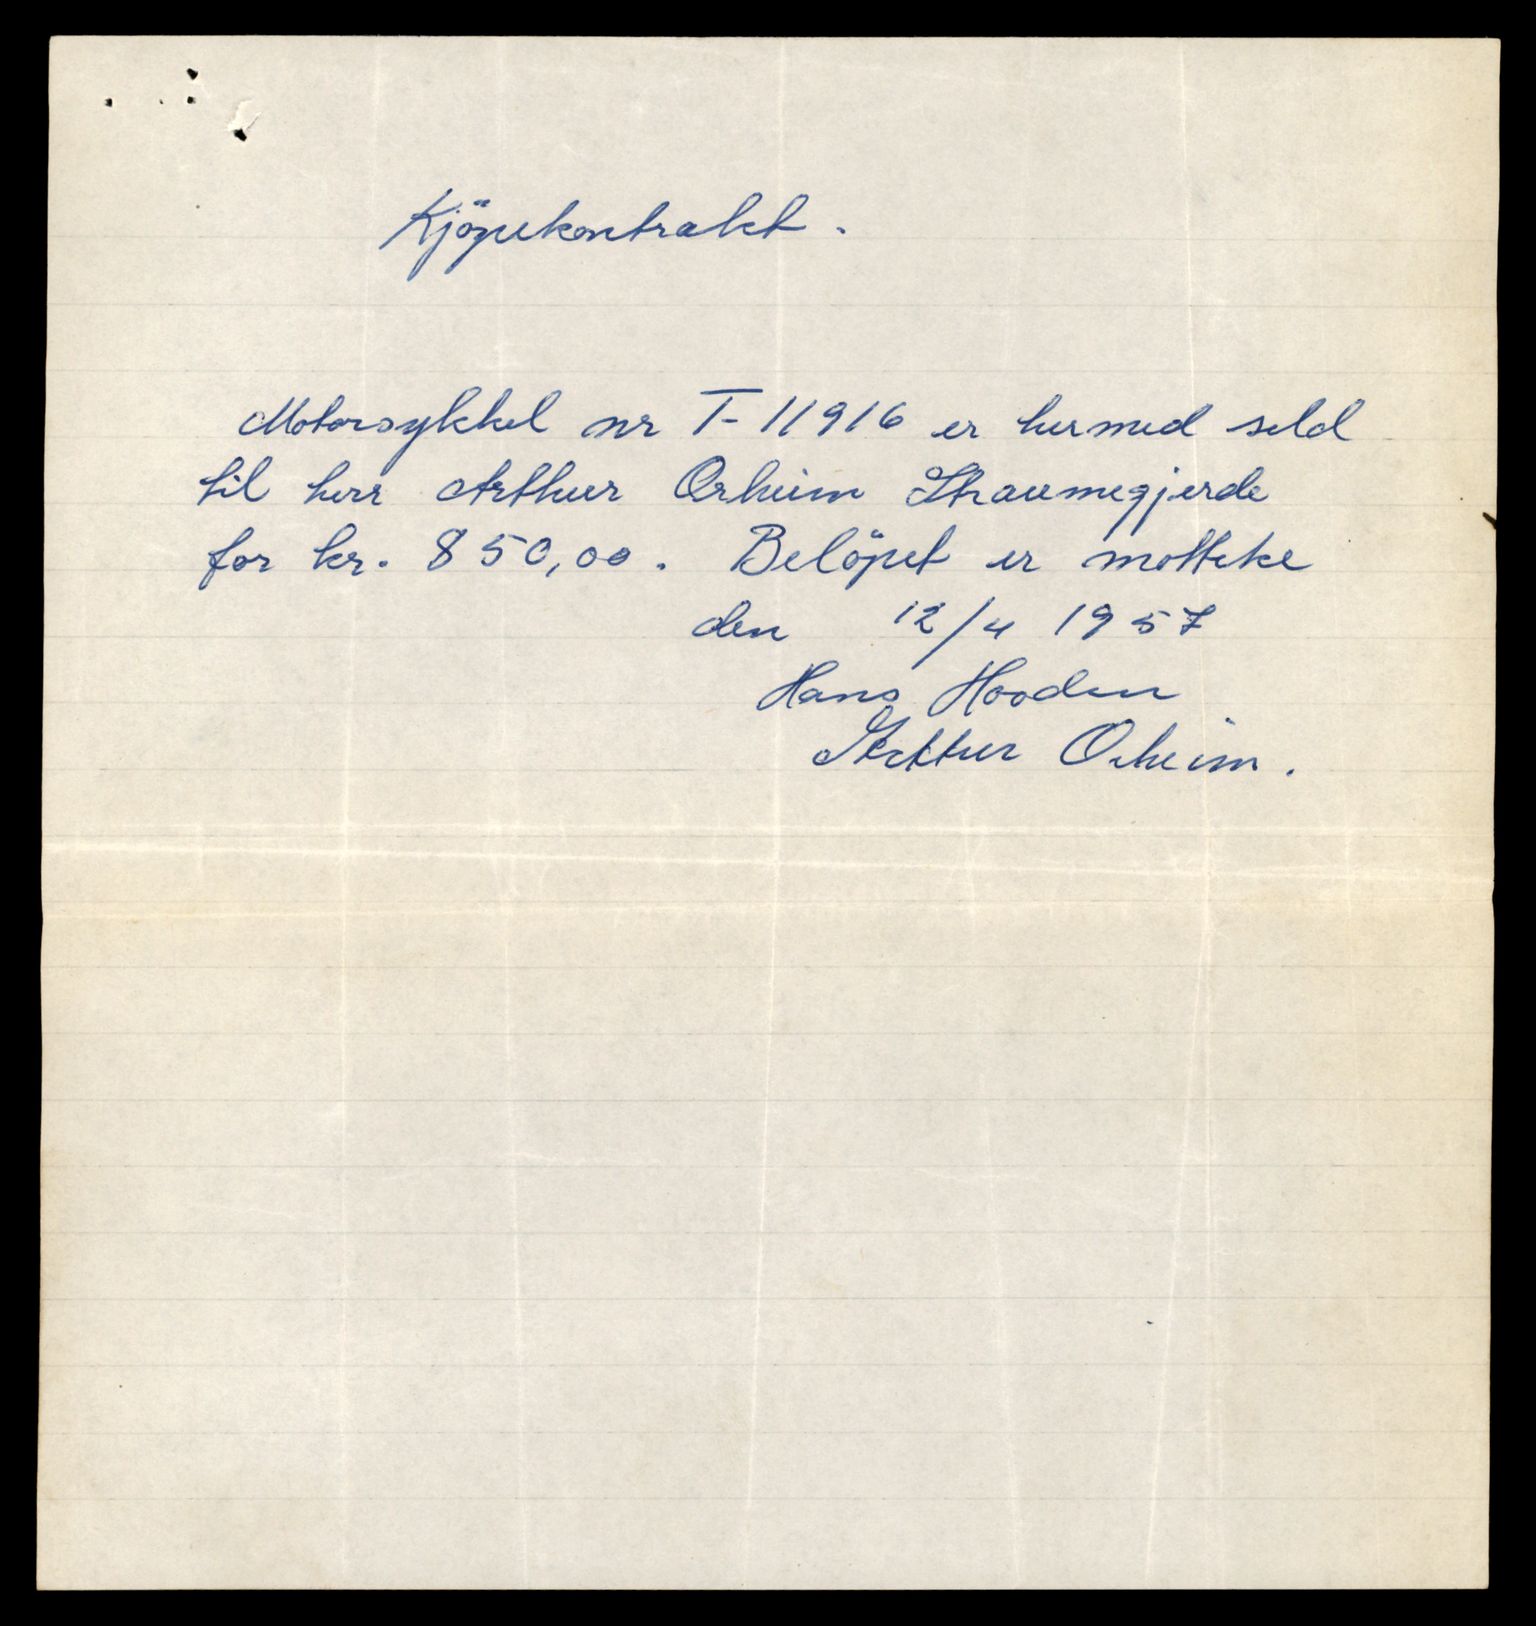 Kjöpekontrakt.
Motorsykkel nr T-11916 er hermed seld
til herr Arthur Orheim Straumegjerde
for kr. 850,00. Belöpet er motteke
den 12/4 1957
Hans Hooden
Arthur Orheim.